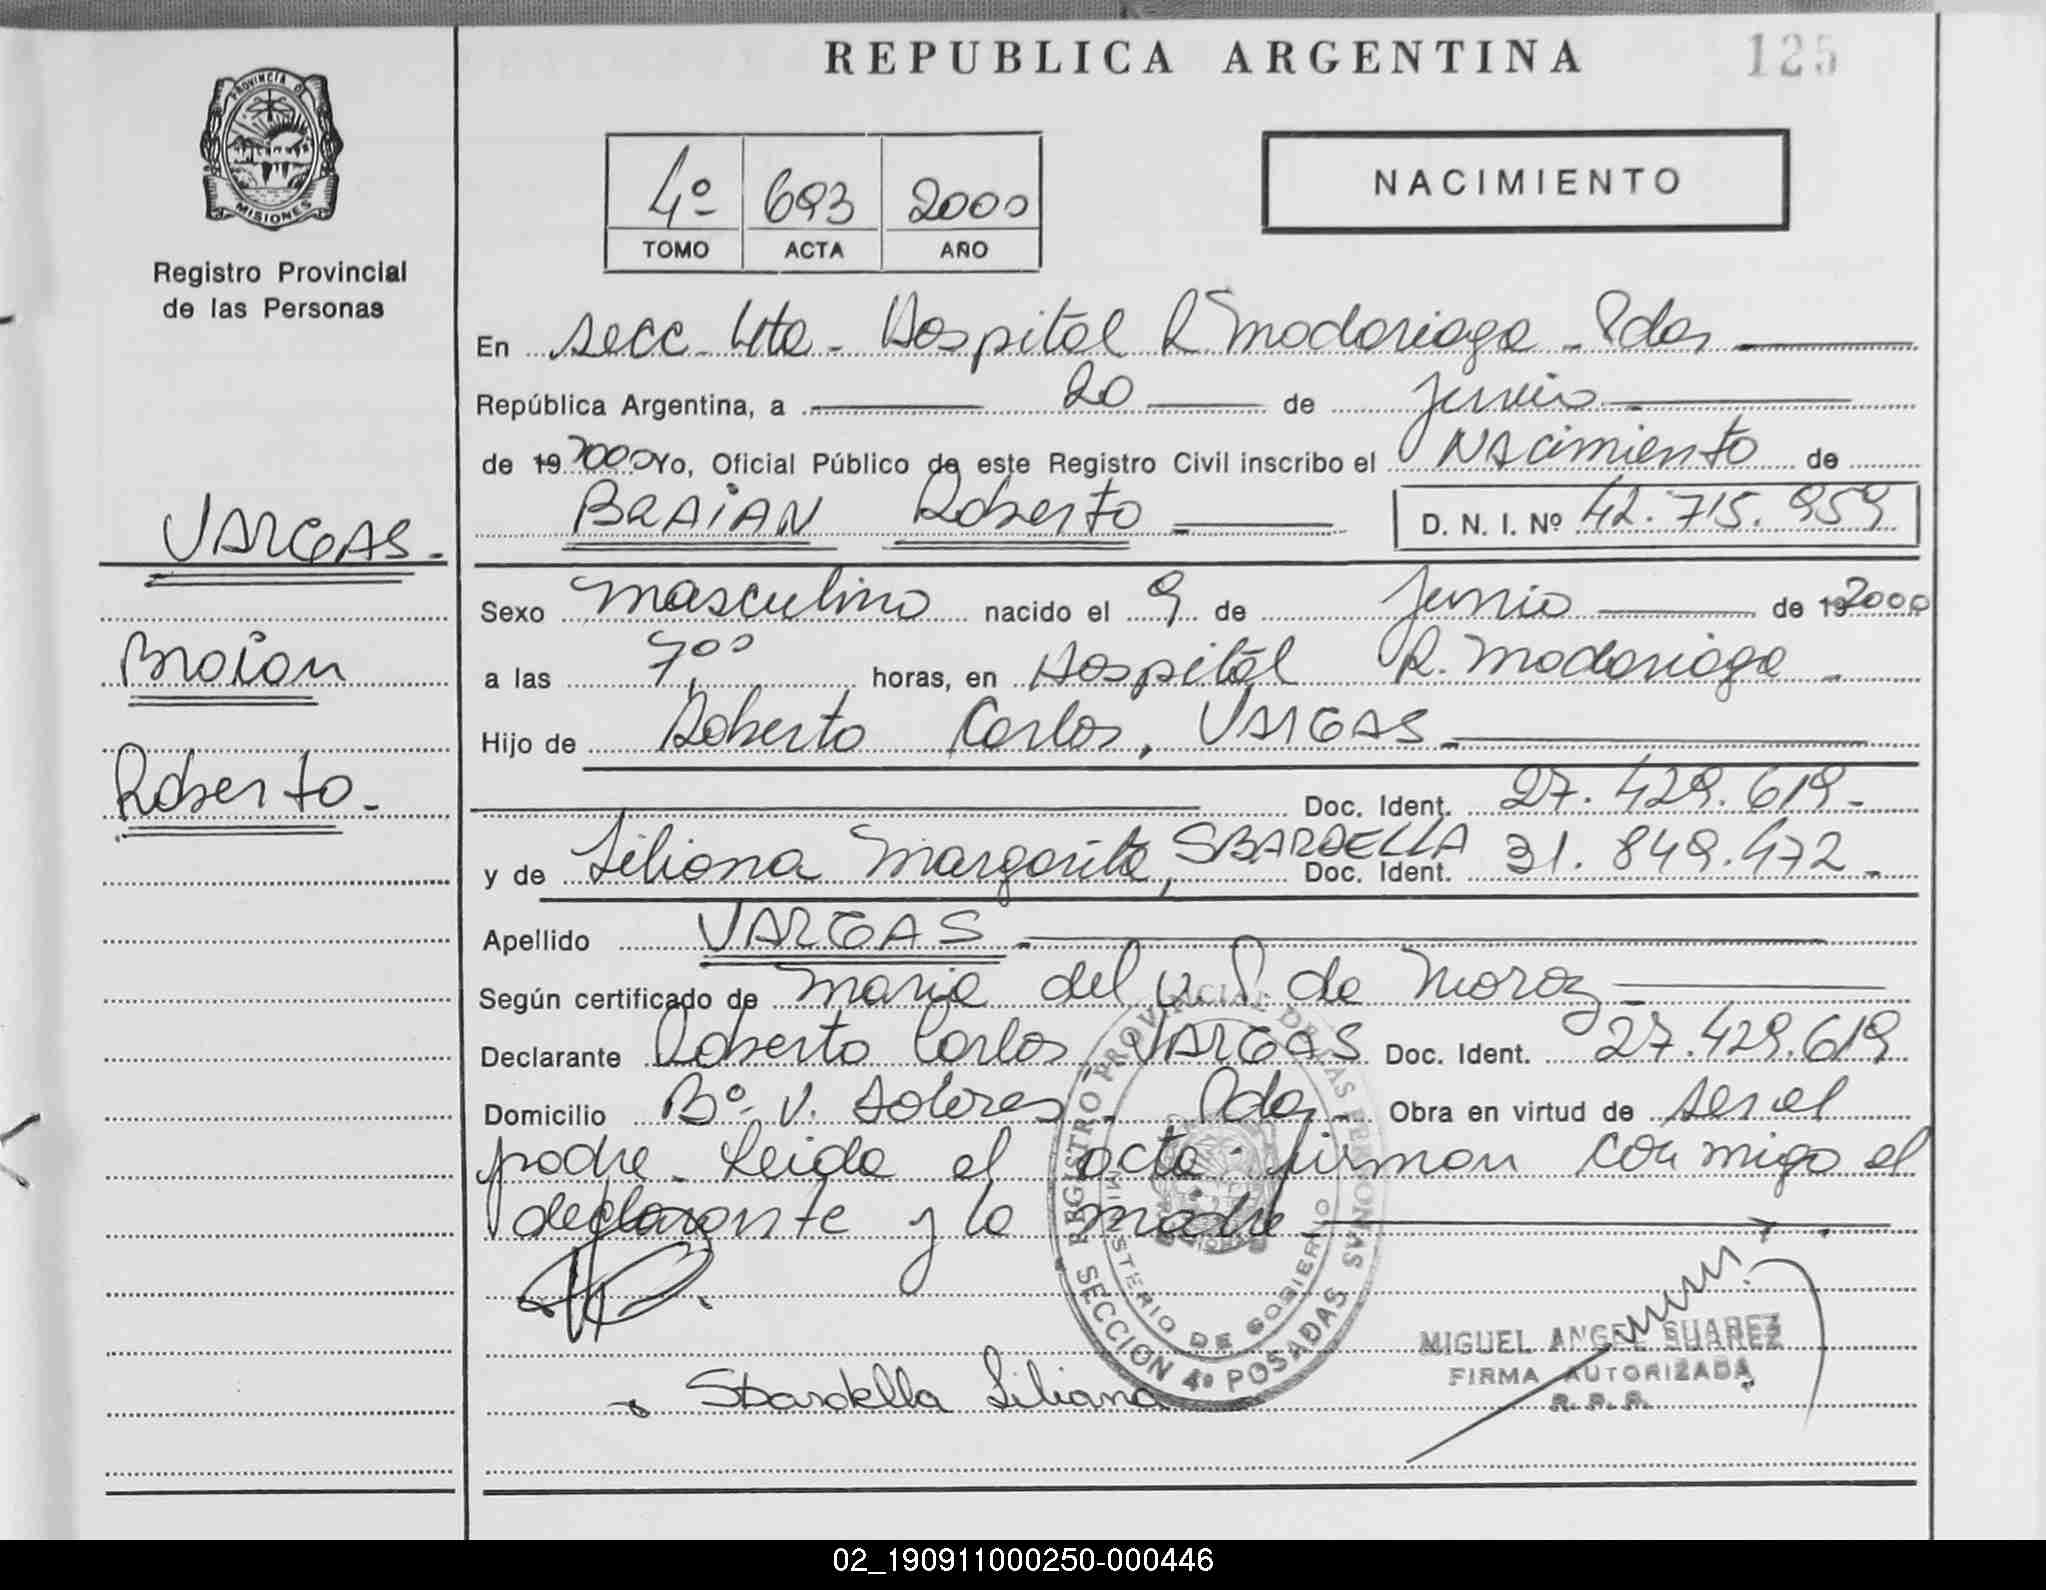 REPUBLICA ARGENTINA
125
PROVINCIA DE
MISIONES
Registro Provincial
de las Personas
4º 693 2000
TOMO ACTA AÑO
NACIMIENTO
En secc. 4ta - Hospital R. Madariaga - Pdas
República Argentina, a 20 de junio
de 19 2000 Yo, Oficial Público de este Registro Civil inscribo el Nacimiento de
BRAIAN Roberto
D. N. I. Nº 42.715.959
VARGAS.
Braian
Roberto.
Sexo masculino nacido el 9 de junio de 19 2000
a las 7,00 horas, en Hospital R. Madariaga
Hijo de Roberto Carlos, VARGAS
Doc. Ident. 27.429.619
y de Liliana Margarita, SBARDELLA Doc. Ident. 31.849.472
Apellido VARGAS
Según certificado de Maria del de Moroz
Declarante Roberto Carlos VARGAS Doc. Ident. 27.429.619
Domicilio Bº. V. Dolores - Pdas. Obra en virtud de ser el
padre. Leida el acta firman conmigo el
declarante y la madre
REGISTRO PROVINCIAL DE LAS PERSONAS
MINISTERIO DE GOBIERNO
SECCION 4º POSADAS
Sbardella Liliana
MIGUEL ANGEL SUAREZ
FIRMA AUTORIZADA
R. P. P.
02_190911000250-000446